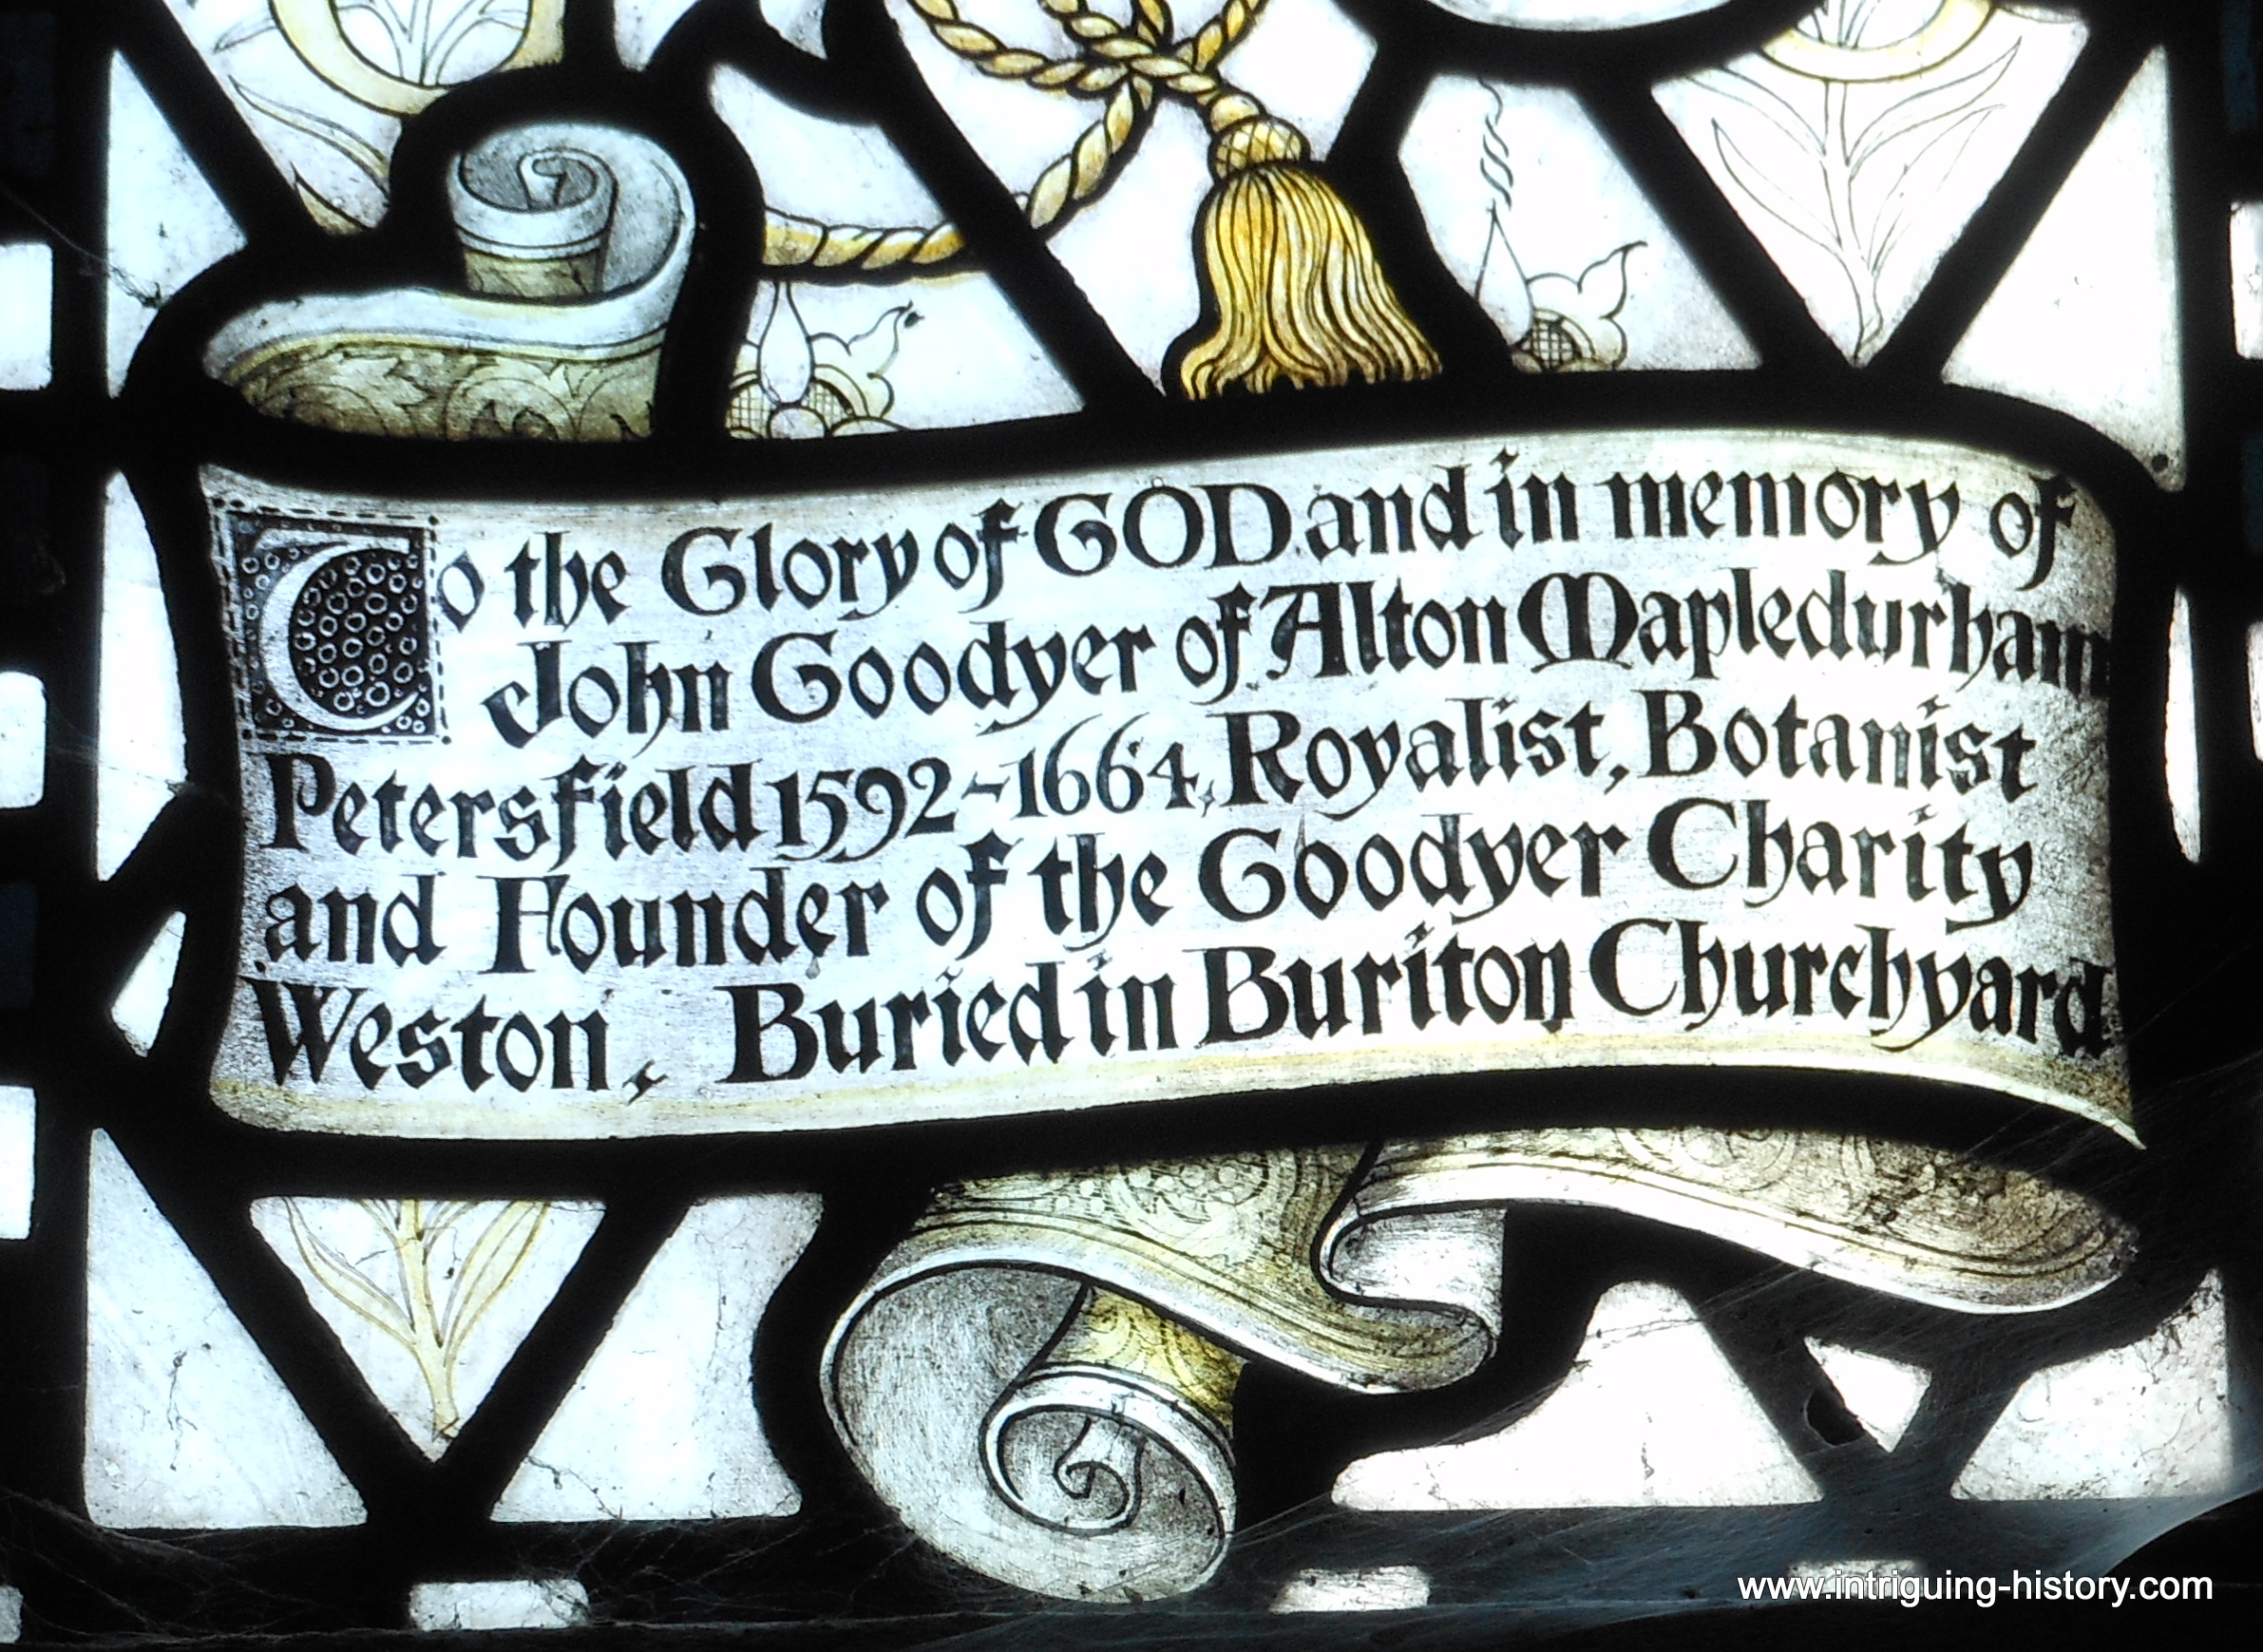 To the Glory of GOD and in memory of
John Goodyer of Alton Mapledurham
Petersfield 1592-1664, Royalist, Botanist
and Founder of the Goodyer Charity
Weston, Buried in Buriton Churchyard
www.intriguing-history.com